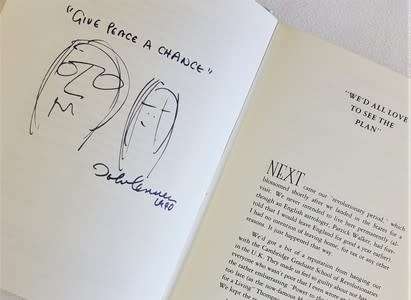 "GIVE PEACE A CHANCE"
John Lennon
1980
"WE'D ALL LOVE
TO SEE THE
PLAN"
NEXT came our 'revolutionary period' which
blossomed shortly after we landed in the States for a
visit. We never intended to live here permanently (al-
though an English astrologer, Patrick Walker, had fore-
told that I would leave England for good a year earlier)
I had no intention of leaving home, for tax or any other
reason. It just happened that way.
We'd got a bit of a reputation from hanging out
with the Cambridge Graduate School of Revolutionaries
in the U.K. They made us feel so guilty about not hating
everyone who wasn't poor that I even wrote
the rather embarrassing "Power
too late
for a Living" Thompson
We kept the